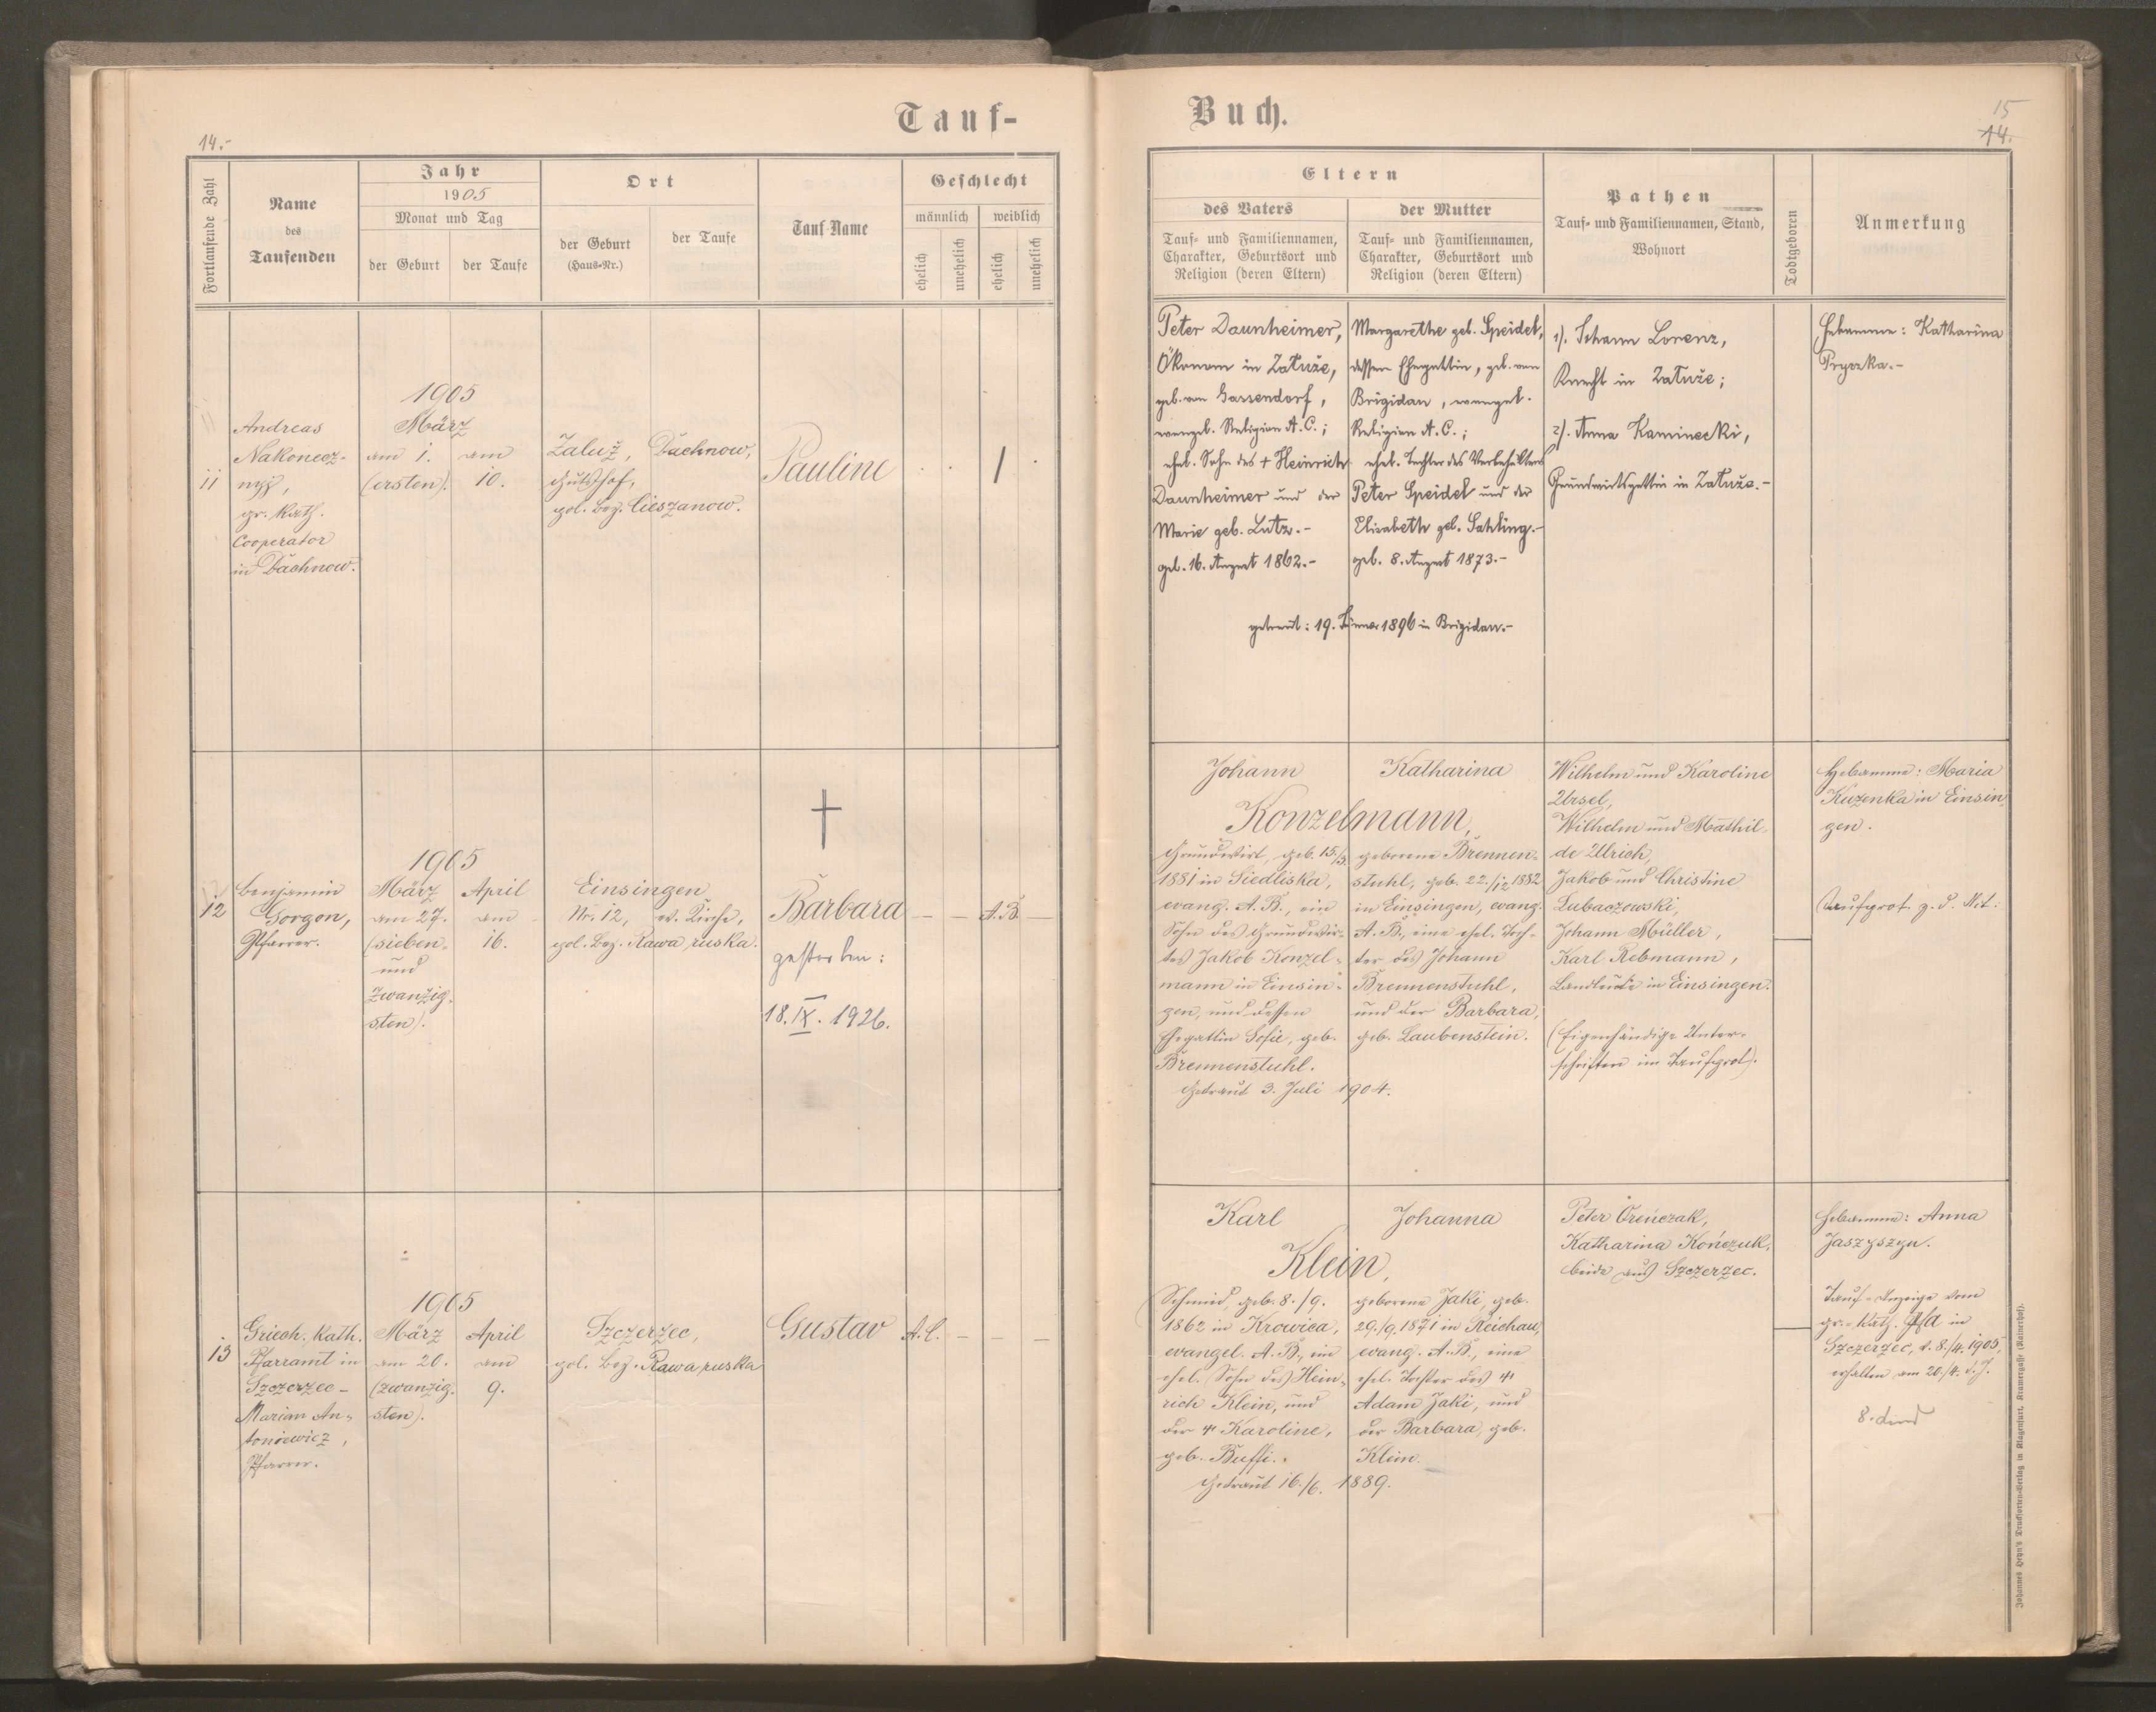 Tauf-
Buch.
14.-
15
14.
Fortlaufende Zahl
Name
des
Taufenden
Jahr
1905
Monat und Tag
der Geburt
der Taufe
Ort
der Geburt
(Haus-Nr.)
der Taufe
Tauf-Name
Geschlecht
männlich
weiblich
ehelich
unehelich
ehelich
unehelich
Eltern
des Vaters
Tauf- und Familiennamen,
Charakter, Geburtsort und
Religion (deren Eltern)
der Mutter
Tauf- und Familiennamen,
Charakter, Geburtsort und
Religion (deren Eltern)
Pathen
Tauf- und Familiennamen, Stand,
Wohnort
Todtgeboren
Anmerkung
11
Andreas
Nakonecz-
nyj,
gr. kath.
Cooperator
in Dachnow.
1905
März
am 1.
(ersten).
am
10.
Zaluż,
Gutshof,
Dachnow,
pol. Bez. Cieszanow.
Pauline
1
Peter Daunheimer,
Ökonom in Załuże,
geb. von Gassendorf,
evangel. Religion A. C.;
ehel. Sohn des + Heinrich
Daunheimer und der
Marie geb. Lutz.-
geb. 16. August 1862.-
Margarethe geb. Speidel,
dessen Ehegattin, geb. von
Brigidau, evangel.
Religion A. C.;
ehel. Tochter des
Peter Speidel und der
Elisabeth geb. Sahling.-
geb. 8. August 1873.-
getraut: 19. Jänner 1896 in Brigidau.-
1). Johann Lorenz,
Knecht in Załuże;
2). Anna Kaminecki,
Grundwirtsgattin in Załuże.-
Hebamme: Katharina
Pryszka.-
12
Benjamin
Gorgon,
Pfarrer.
1905
März
am 27.
(sieben-
und
zwanzig-
sten).
April
am
16.
Einsingen
Nr. 12, ev. Kirche,
pol. Bez. Rawa ruska.
Barbara
gestorben:
18. IX. 1926.
A. B.
Johann
Katharina
Konzelmann,
Grundwirt, geb. 15./3.
1881 in Siedliska,
evang. A. B., ein
Sohn des Grundwir-
tes Jakob Konzel-
mann in Einsin-
gen, und dessen
Ehegattin Sofie, geb.
Brennenstuhl.
geborene Brennen-
stuhl, geb. 22./12 1882
in Einsingen, evang.
A. B., eine ehel. Toch-
ter des Johann
Brennenstuhl,
und der Barbara,
geb. Laubenstein.
Getraut 3. Juli 1904.
Wilhelm und Karoline
Ursel,
Wilhelm und Mathil-
de Ulrich,
Jakob und Christine
Lubaczowski,
Johann Müller,
Karl Rebmann,
Landleute in Einsingen.
(Eigenhändige Unter-
schriften im Taufprot.).
Hebamme: Maria
Kuzenka in Einsin-
gen.
Taufprot. z. d.
13
Griech. kath.
Pfarramt in
Szczerzec -
Marian An-
toniewicz,
Pfarrer.
1905
März
am 20.
(zwanzig-
sten).
April
am
9.
Szczerzec,
pol. Bez. Rawa ruska
Gustav
A. C.
Karl
Johanna
Klein,
Schmied, geb. 8./9.
1862 in Krowica,
evangel. A. B., ein
ehel. Sohn des Hein-
rich Klein, und
der + Karoline,
geb. Buffi.
geborene Jaki, geb.
29./9. 1871 in Reichau,
evang. A. B., eine
ehel. Tochter des +
Adam Jaki, und
der Barbara, geb.
Klein.
Getraut 16./6. 1889.
Peter Oreńczak,
Katharina Kończuk,
beide aus Szczerzec.
Hebamme: Anna
Jaszyszyn.
Tauf-Anzeige vom
gr.-kath. Pfa in
Szczerzec, d. 8./4. 1905,
erhalten am 20./4. d. J.
Johannes Heyn's Drucksorten-Verlag in Klagenfurt, Kramergasse (Rainerhof).